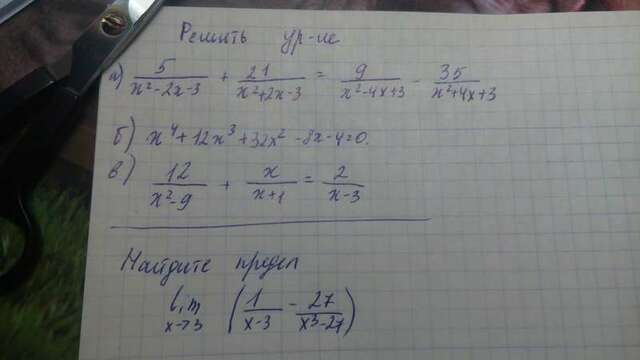 Решить ур-ие
а) 5/(x²-2x-3) + 21/(x²+2x-3) = 9/(x²-4x+3) - 35/(x²+4x+3)
б) x⁴+12x³+32x²-8x-4=0.
в) 12/(x²-9) + x/(x+1) = 2/(x-3)
Найдите предел
lim x→3 (1/(x-3) - 27/(x³-27))